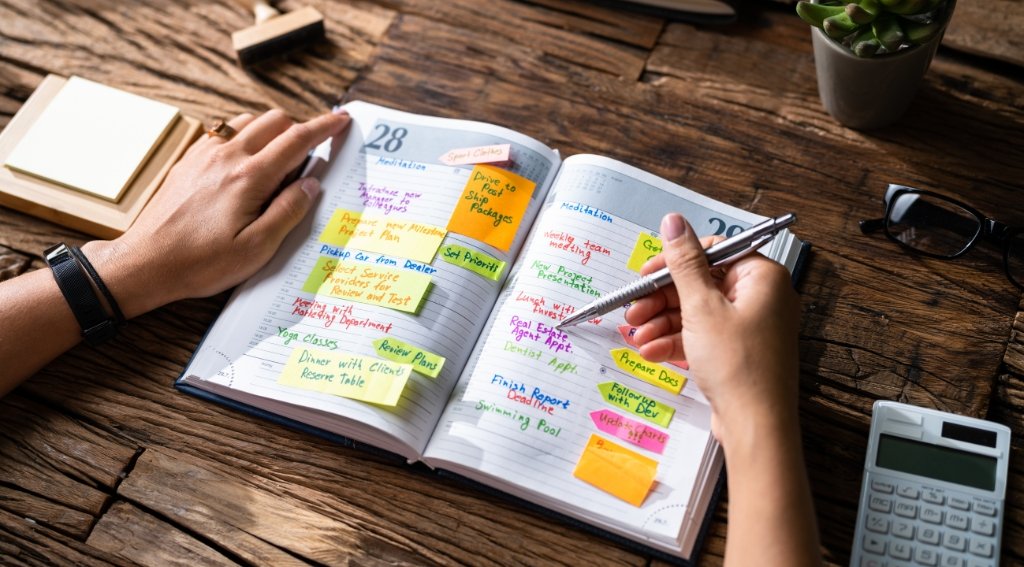 28
Meditation
Sport Clothes
Introduce new
Manager to
Colleagues
Drive to
Post
Ship
Packages
Prepare new Milestone
Project Plan
Set Prioriti
Pickup Car from Dealer
Select Service
Providers for
Review and Test
Meeting with
Marketing Department
Yoga Classes
Review Plans
Dinner with Clients
Reserve Table
29
Meditation
Weekly team
meeting
New Project
Presentation
Lunch with
Real Estate
Agent Appt.
Dentist Appt.
Prepare Docs
Finish Report
Deadline
Follow up
with Dev
Update Charts
Swimming Pool